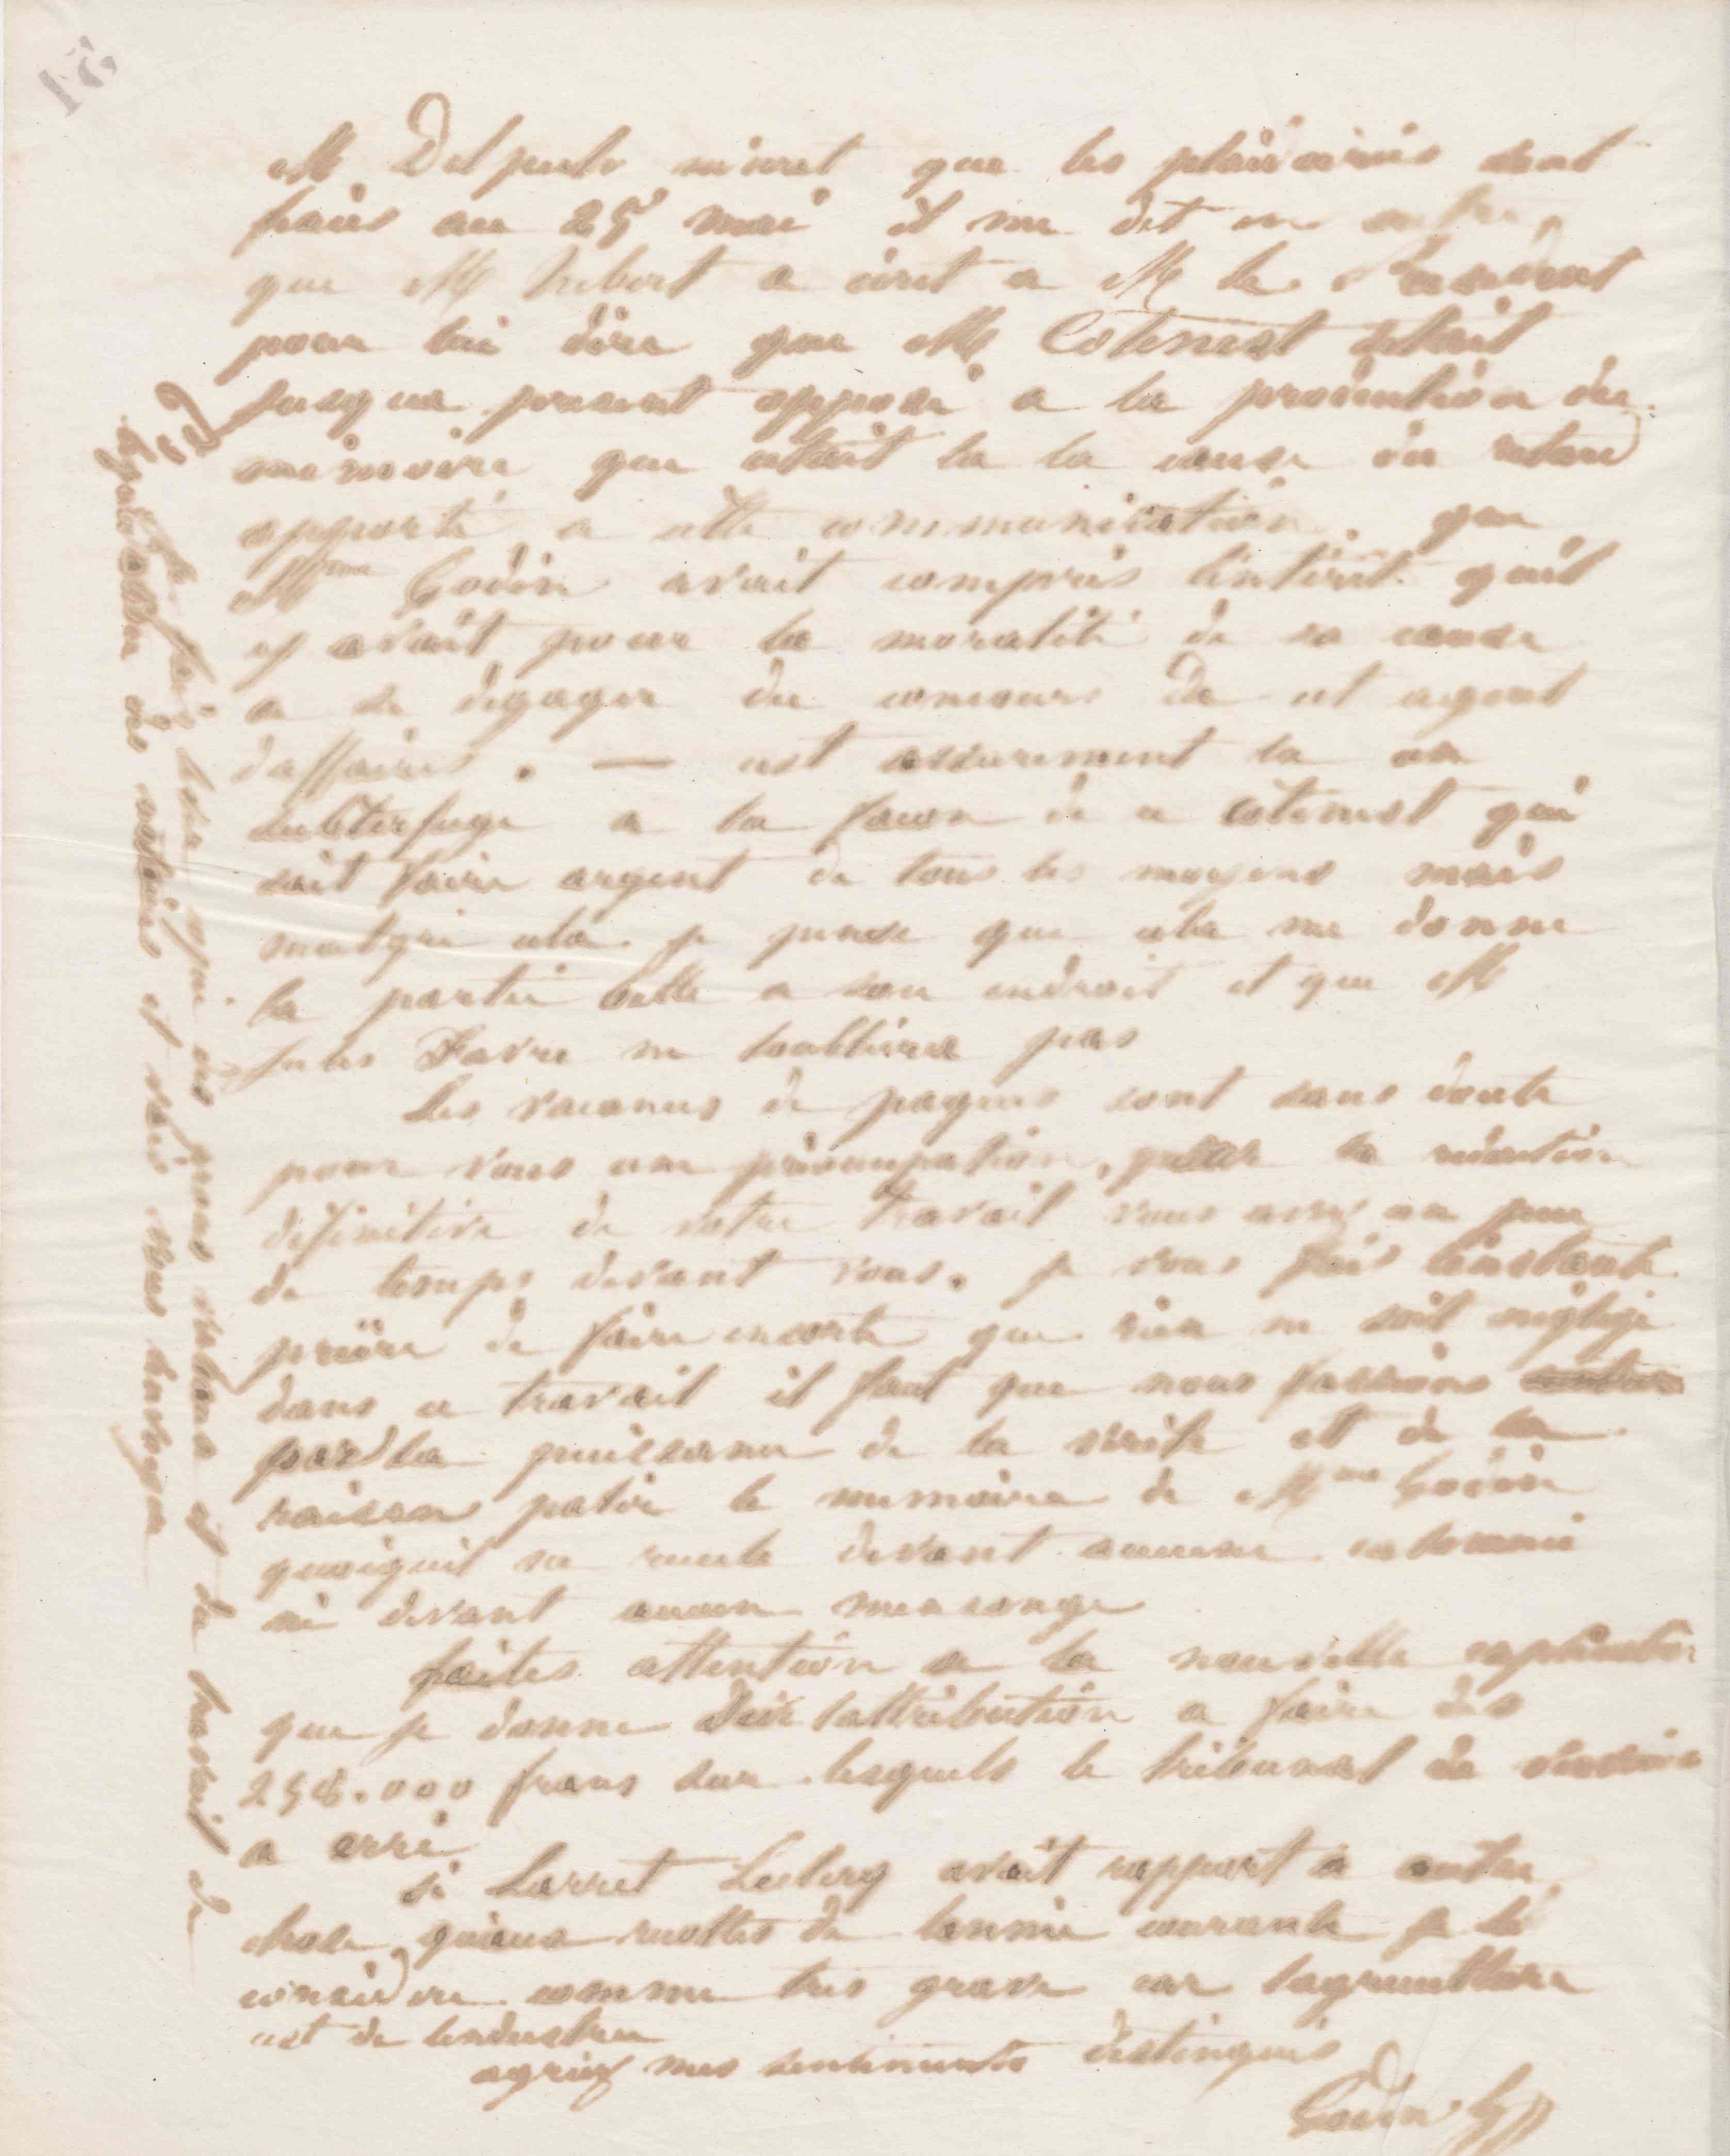 51
M Delpech m'ecrit que les plaidoiries sont
fixés au 25 mai il me dit en outre
que M Hebert a ecrit a M le President
pour lui dire que M Cotenest setait
jusqua present opposé a la production du
mémoire que cetait la la cause du retard
apporté a cette communication. que
Mme Godin avait compris l'intérêt quil
y avait pour la moralité de sa cause
a se dégager du concours de cet agent
daffaires. — cest assurement la un
subterfuge a la facon de ce cotenest qui
sait faire argent de tous les moyens mais
malgré cela je pense que cela me donne
la partie belle a son endroit et que M
Jules Favre ne loubliera pas
Les vacances de paques sont sans doute
pour vous une préocupation, pour la rédaction
définitive de votre travail vous avez un peu
de temps devant vous. je vous fais linstante
prière de faire ensorte que rien ne soit négligé
dans ce travail il faut que nous fassions
par la puissance de la vérité et de la
raison palir le memoire de Mme Godin
quoiquil ne recule devant aucune calomnie
ni devant aucun mensonge
faites attention a la nouvelle explication
que je donne sur lattribution a faire des
258.000 francs sur lesquels le tribunal de vervins
a erré
si Larret Leclerq avait rapport a autre
chose quaux recoltes de lannée courante je le
considere comme tres grave car lagriculture
cest de lindustrie
agréez mes sentiments distingués
Godin
Je fais votre copie des grands volumes et du travail de
des notaires et vais vous lenvoyer